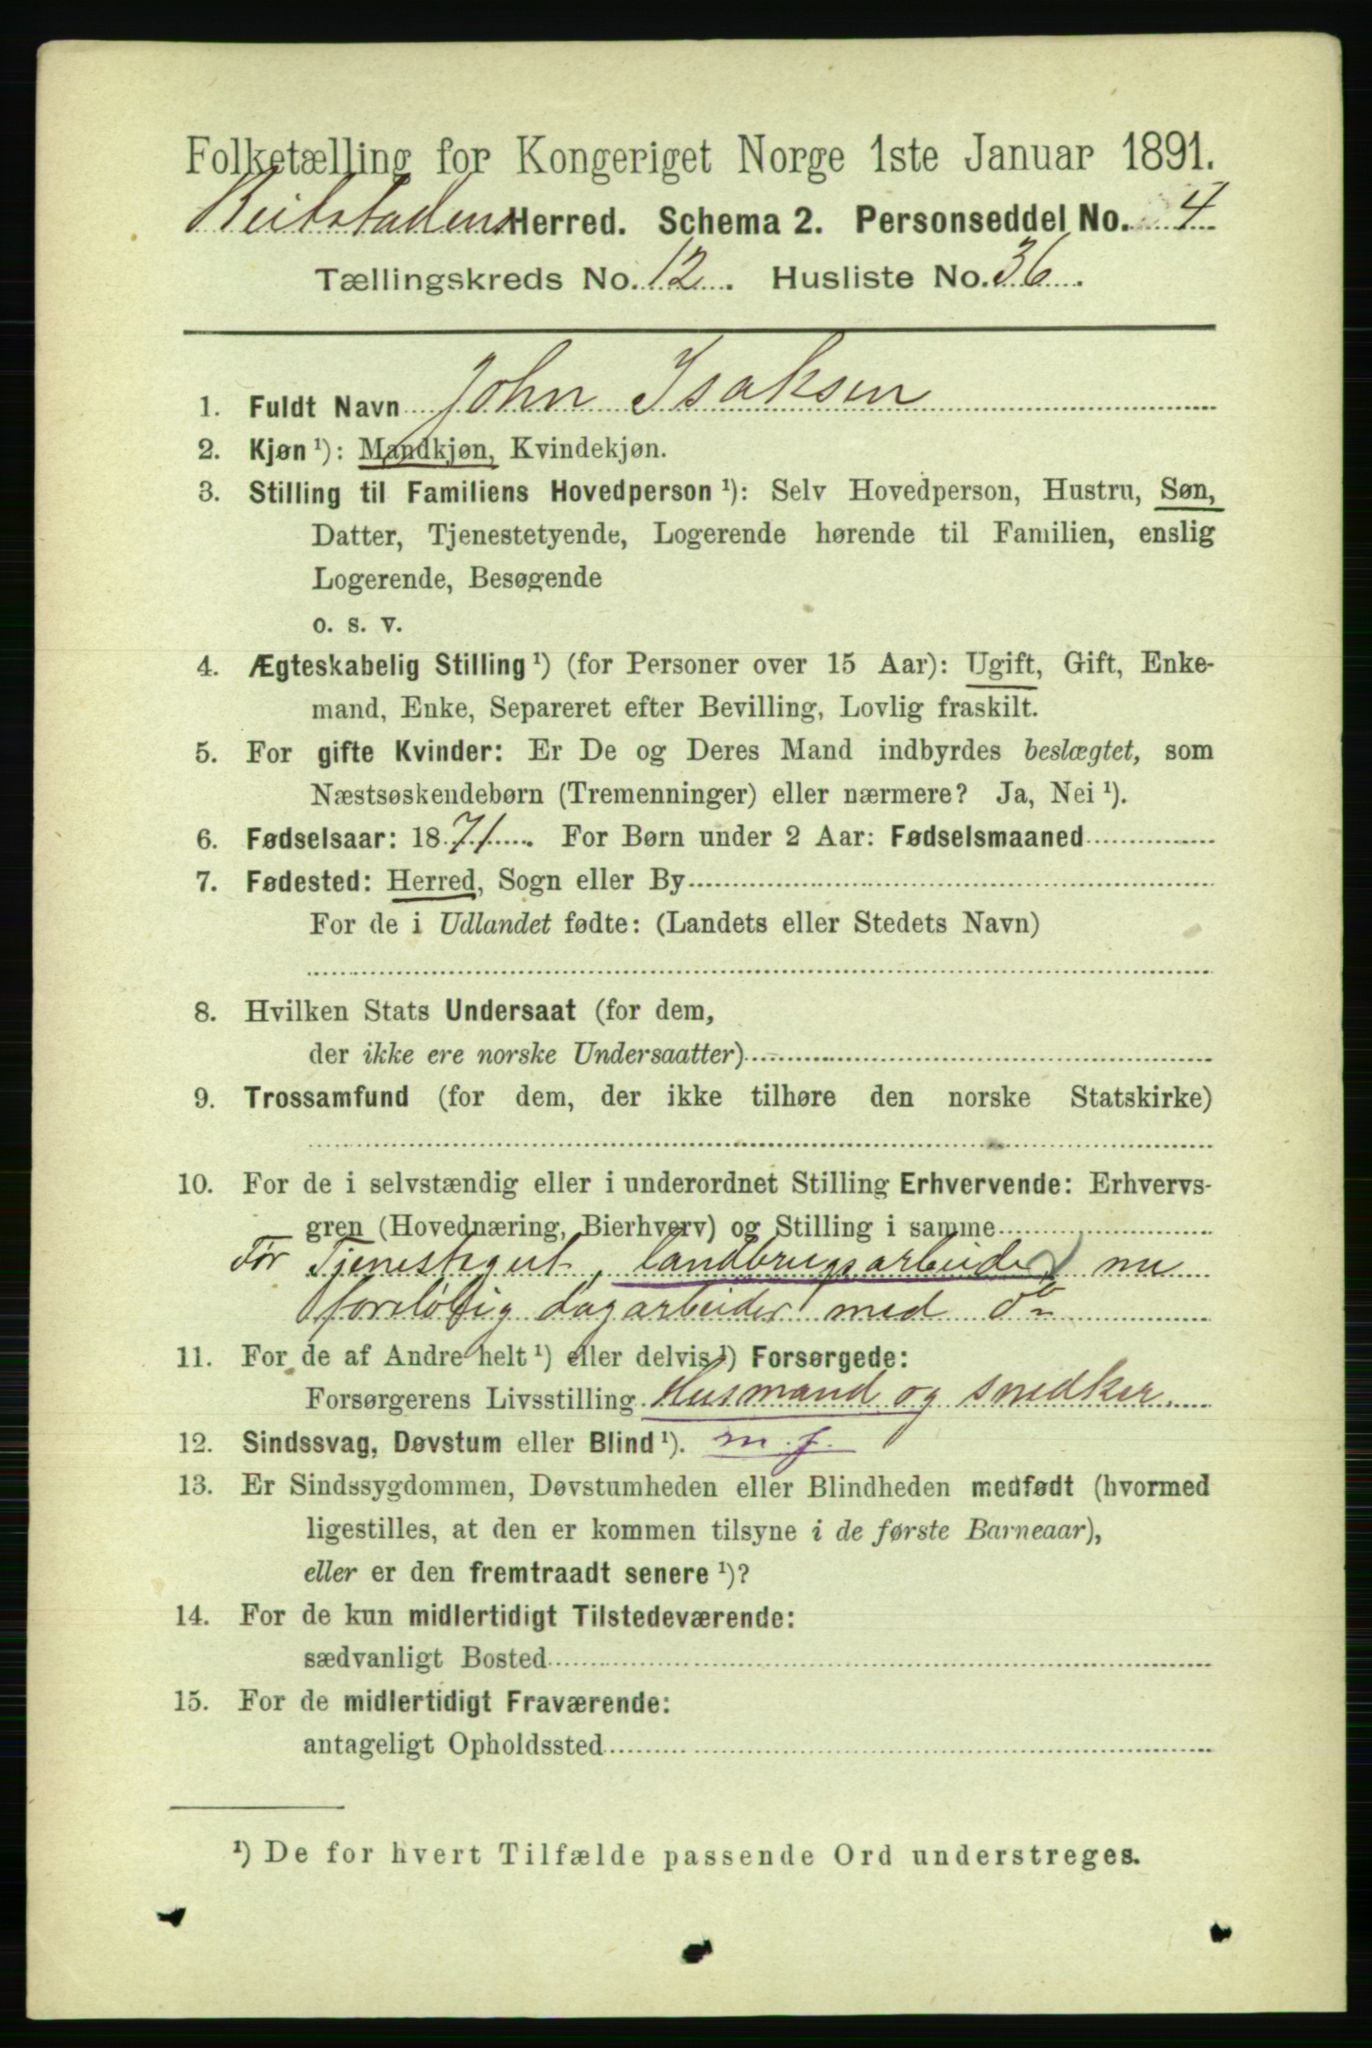 Folketælling for Kongeriget Norge 1ste Januar 1891.
Beitstadens Herred. Schema 2. Personseddel No. 4
Tællingskreds No. 12. Husliste No. 36.
1. Fuldt Navn John Isaksen
2. Kjøn ¹): Mandkjøn, Kvindekjøn.
3. Stilling til Familiens Hovedperson ¹): Selv Hovedperson, Hustru, Søn,
Datter, Tjenestetyende, Logerende hørende til Familien, enslig
Logerende, Besøgende
o. s. v.
4. Ægteskabelig Stilling ¹) (for Personer over 15 Aar): Ugift, Gift, Enke-
mand, Enke, Separeret efter Bevilling, Lovlig fraskilt.
5. For gifte Kvinder: Er De og Deres Mand indbyrdes beslægtet, som
Næstsøskendebørn (Tremenninger) eller nærmere? Ja, Nei ¹).
6. Fødselsaar: 1871. For Børn under 2 Aar: Fødselsmaaned
7. Fødested: Herred, Sogn eller By
For de i Udlandet fødte: (Landets eller Stedets Navn)
8. Hvilken Stats Undersaat (for dem,
der ikke ere norske Undersaatter)
9. Trossamfund (for dem, der ikke tilhøre den norske Statskirke)
10. For de i selvstændig eller i underordnet Stilling Erhvervende: Erhvervs-
gren (Hovednæring, Bierhverv) og Stilling i samme
Før Tjenestegut, landbrugsarbeider nu
foreløbig dagarbeider med do
11. For de af Andre helt ¹) eller delvis ¹) Forsørgede:
Forsørgerens Livsstilling Husmand og snedker.
12. Sindssvag, Døvstum eller Blind ¹). m. f.
13. Er Sindssygdommen, Døvstumheden eller Blindheden medfødt (hvormed
ligestilles, at den er kommen tilsyne i de første Barneaar),
eller er den fremtraadt senere ¹)?
14. For de kun midlertidigt Tilstedeværende:
sædvanligt Bosted
15. For de midlertidigt Fraværende:
antageligt Opholdssted
¹) De for hvert Tilfælde passende Ord understreges.